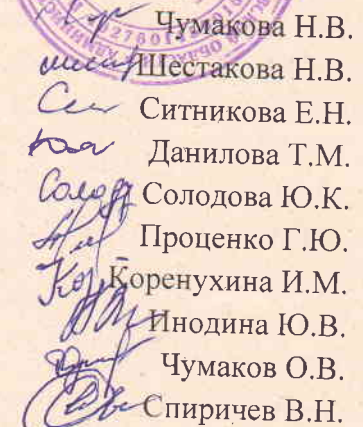 Чумакова Н.В.
Шестакова Н.В.
Ситникова Е.Н.
Данилова Т.М.
Солодова Ю.К.
Проценко Г.Ю.
Коренухина И.М.
Инодина Ю.В.
Чумаков О.В.
Спиричев В.Н.